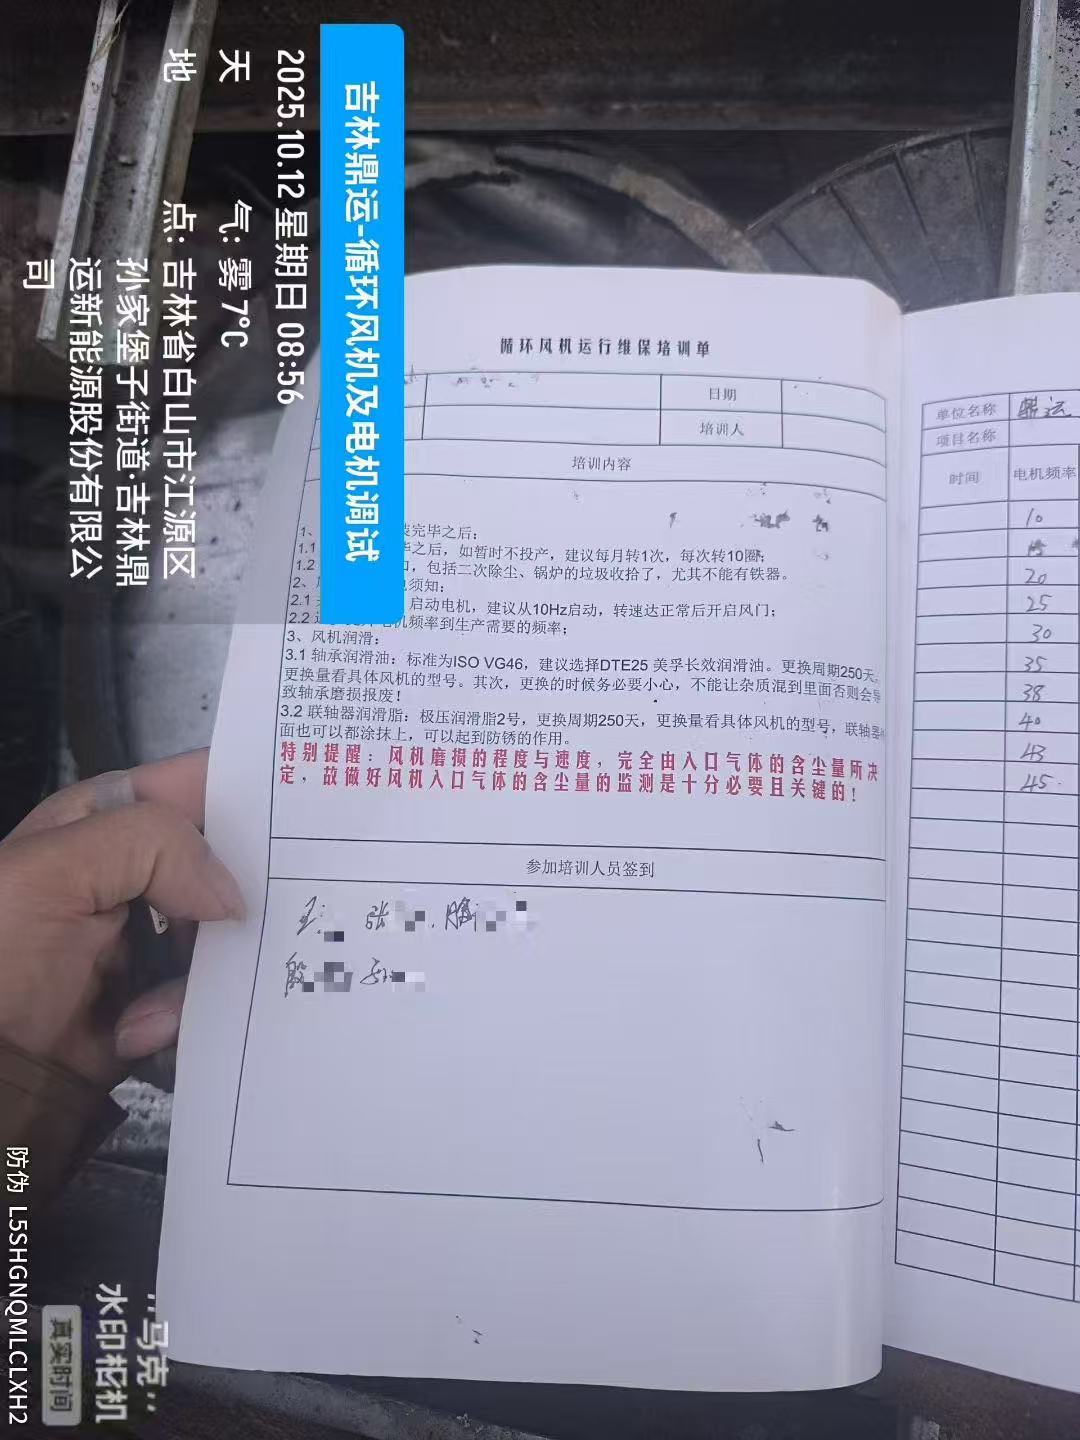 吉林鼎运-循环风机及电机调试
2025.10.12 星期日 08:56
天 气: 雾 7℃
地 点: 吉林省白山市江源区
孙家堡子街道·吉林鼎
运新能源股份有限公
司
循环风机运行维保培训单
日期
培训人
培训内容
1、
装完毕之后;
1.1
毕之后，如暂时不投产，建议每月转1次，每次转10圈;
1.2
口，包括二次除尘、锅炉的垃圾收拾了，尤其不能有铁器。
2、
须知:
2.1
启动电机，建议从10Hz启动，转速达正常后开启风门;
2.2
机频率到生产需要的频率;
3、风机润滑:
3.1 轴承润滑油: 标准为ISO VG46，建议选择DTE25 美孚长效润滑油。更换周期250天，
更换量看具体风机的型号。其次，更换的时候务必要小心，不能让杂质混到里面否则会导
致轴承磨损报废!
3.2 联轴器润滑脂: 极压润滑脂2号，更换周期250天，更换量看具体风机的型号，联轴器
面也可以都涂抹上，可以起到防锈的作用。
特别提醒: 风机磨损的程度与速度，完全由入口气体的含尘量所决
定，故做好风机入口气体的含尘量的监测是十分必要且关键的!
参加培训人员签到
张
殷
单位名称 鼎运
项目名称
时间 电机频率
10
20
25
30
35
38
40
43
45
马克
水印相机
真实时间
防伪 L5SHGNQMLCLXH2